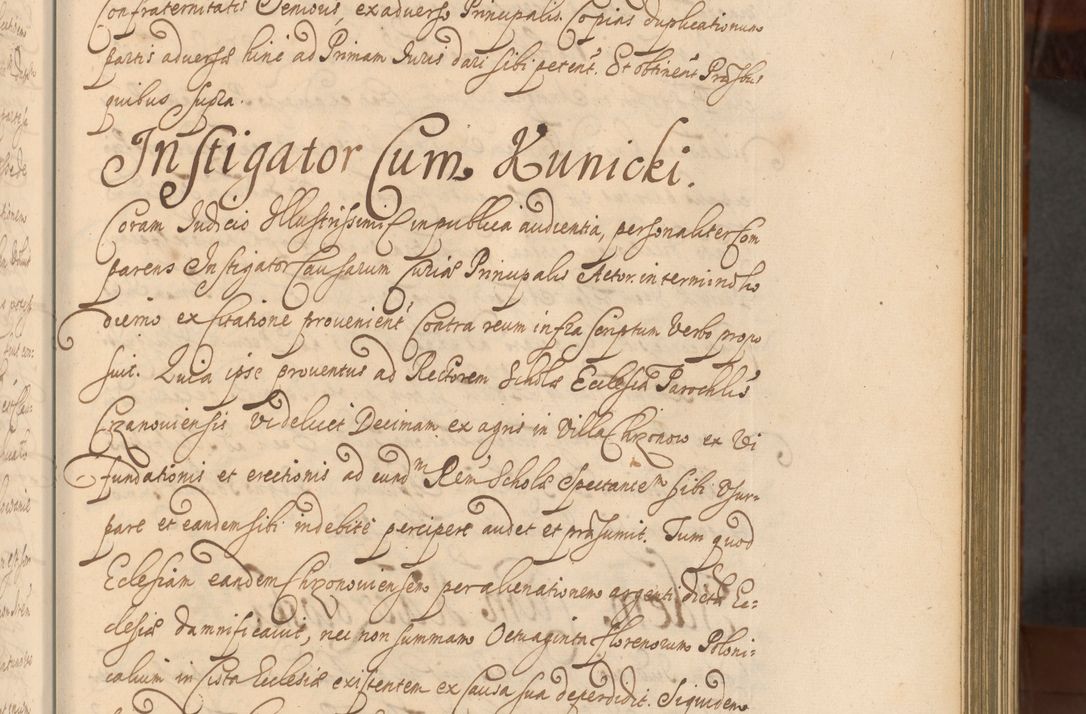 Confraternitatis Oemious, ex adverso Principalis. Copias duplicationum
partis adversæ hinc ad Primam Juris dari sibi petent. Et obtinent Præsbus
quibus supra.
Instigator Cum Kunicki.
Coram Judicio Illustrissimi C in publica audientia, personaliter Com
parens Instigator Causarum Curiæ Principalis Actor. in termino ho
dierno ex Citatione provenient, Contra reum infra scriptum Verbo propo
suit. Quia ipse proventus ad Rectorem Scholæ Ecclesiæ Parochlis
Crzanoviensis videlicet Decimam ex agris in Villa Chrzonow ex vi
fundationis et erectionis ad eundm Rem Scholæ spectantem sibi Usur-
pare et eandem sibi indebite percipere audet et præsumit. Tum quod
Eclesiam eandem Chrzonoviensem per alienationem argenti dictæ Ec=
clesiæ damnificavit, nec non summam Octuaginta florenorum Poloni=
calium in Cista Ecclesiæ existentem ex Causa sua deperdidit. Siquidem